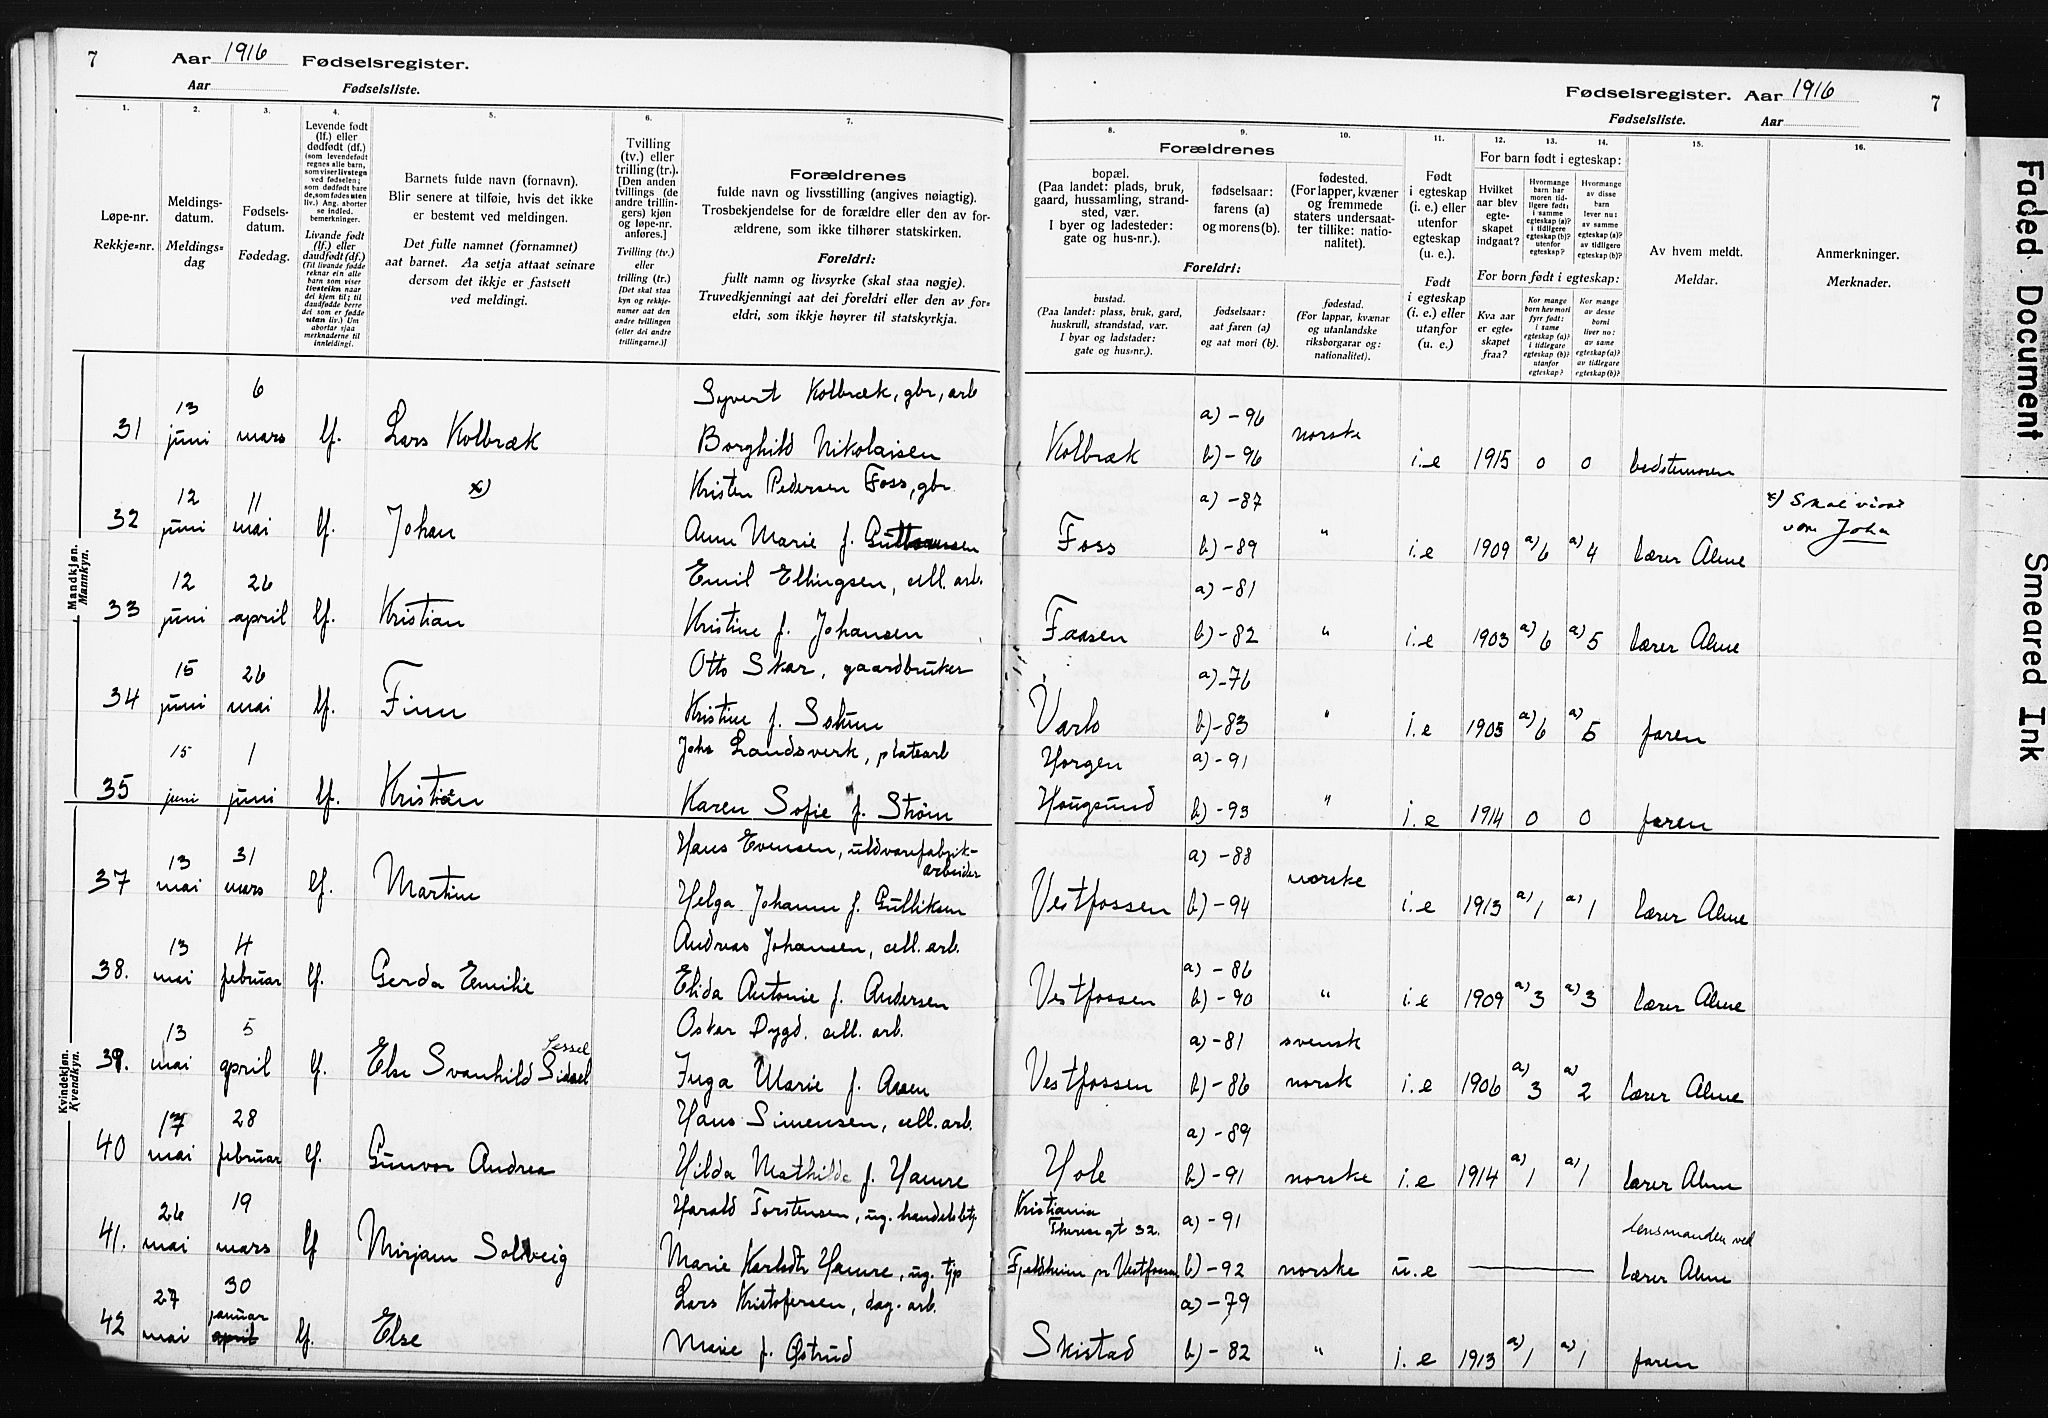 7 Aar 1916 Fødselsregister.
Aar Fødselsliste.
Fødselsregister. Aar 1916 7
Fødselsliste. Aar
1. 2. 3. 4. 5. 6. 7. 8. 9. 10. 11. 12. 13. 14. 15. 16.
Løpe-nr.
Rekkje-nr.
Meldings-
datum.
Meldings-
dag
Fødsels-
datum.
Fødedag.
Levende født
(lf.) eller
dødfødt (df.)
(som levendefødt
regnes alle barn,
som viser livstegn
ved fødselen;
som dødfødt bare
de, som fødes uten
liv.) Ang. aborter
se indled.
bemerkninger.
Livande fødd
(lf.) eller
daudfødt (df.)
(Til livande fødde
reknar ein alle
barn som viser
livsteikn naar
dei kjem til; til
daudfødde berre
dei som er fødde
utan liv.) Um
abortar sjaa
merknaderne til
innleidingi.
Barnets fulde navn (fornavn).
Blir senere at tilføie, hvis det ikke
er bestemt ved meldingen.
Det fulle namnet (fornamnet)
aat barnet. Aa setja attaat seinare
dersom det ikkje er fastsett
ved meldingi.
Tvilling
(tv.) eller
trilling (tr.).
[Den anden
tvillings (de
andre trillin-
gers) kjøn
og løpe-nr.
anføres.]
Tvilling (tv.)
eller
trilling (tr.)
[Det skal staa
kyn og rekkje-
numer aat den
andre tvillingen
(eller dei andre
trillingarne.)]
Forældrenes
fulde navn og livsstilling (angives nøiagtig).
Trosbekjendelse for de forældre eller den av for-
ældrene, som ikke tilhører statskirken.
Foreldri:
fullt namn og livsyrke (skal staa nøgje).
Truvedkjenningi aat dei foreldri eller den av for-
eldri, som ikkje høyrer til statskyrkja.
Forældrenes
bopæl.
(Paa landet: plads, bruk,
gaard, hussamling, strand-
sted, vær.
I byer og ladesteder:
gate og hus-nr.).
fødselsaar:
farens (a)
og morens (b).
fødested.
(For lapper, kvæner
og fremmede
staters undersaat-
ter tillike: natio-
nalitet).
Foreldri:
bustad.
(Paa landet: plass, bruk, gard,
huskrull, strandstad, vær.
I byar og ladstader:
gate og hus-nr.).
fødselsaar:
aat faren (a)
og aat mori (b).
fødestad.
(For lappar, kvænar
og utanlandske
riksborgarar og:
nationalitet).
Født
i egteskap
(i. e.) eller
utenfor
egteskap
(u. e.).
Født
i egteskap
(i. e.) eller
utanfor
(u. e.)
For barn født i egteskap:
Hvilket
aar blev
egte-
skapet
indgaat?
Hvormange
barn har
moren tid-
ligere født:
i samme
egteskap (a)?
i tidligere
egteskap (b)?
utenfor
egteskap?
Hvormange
av disse
barn
lever nu:
av samme
egteskap (a)?
av tidligere
egteskap (b)?
For born født i egteskap:
Kva aar
er egte-
skapet
fraa?
Kor mange
born hev mori
fyrr født:
i same
egteskap (a)?
i tidlegare
egteskap (b)?
utanfor
egteskap?
Kor mange
av desse
borni
liver no:
av same
egteskap (a)?
av tidlegare
egteskap (b)?
Av hvem meldt.
Meldar.
Anmerkninger.
Merknader.
Mandkjøn.
Mannkyn.
31 13 juni 6 mars lf. Lars Kolbræk Syvert Kolbræk, gbr, arb
Borghild Nikolaisen Kolbræk a) -96 b) -96 norske i.e 1915 0 0 bedstemoren
32 12 juni 11 mai lf. Johan x) Kristen Pedersen Foss, gbr
Anne Marie f. Foss a) -87 b) -89 " i.e 1909 a) 6 a) 4 lærer Alme x) Skal visst
være Joha
33 12 juni 26 april lf. Kristian Emil Ellingsen, cell. arb.
Kristine f. Johansen Faasen a) -81 b) -82 " i.e 1903 a) 6 a) 5 lærer Alme
34 15 juni 26 mai lf. Finn Otto Skar, gaardbruker
Kristine f. Varlo a) -76 b) -83 " i.e 1905 a) 6 a) 5 faren
35 15 juni 1 juni lf. Kristian Johs Landsverk, platearb
Karen Sofie f. Strøm Horgen
Hougsund a) -91 b) -93 " i.e 1914 0 0 faren
Kvindekjøn.
Kvendkyn.
37 13 mai 31 mars lf. Martine Hans Evensen, uldvarefabrik-
arbeider
Helga Johanne f. Gulliksen Vestfossen a) -88 b) -94 norske i.e 1913 a) 1 a) 1 lærer Alme
38. 13 mai 4 februar lf. Gerda Emilie Andreas Johansen, cell. arb.
Elida Antonie f. Andersen Vestfossen a) -86 b) -90 " i.e 1909 a) 3 a) 3 lærer Alme
39. 13 mai 5 april lf. Else Svanhild Sidsel Sessel Oskar Dygd. cell. arb.
Inga Marie f. Aasen Vestfossen a) -81 svensk b) -86 norsk i.e 1906 a) 3 a) 2 lærer Alme
40 17 mai 28 februar lf. Gunvor Andrea Hans Simensen, cell. arb.
Hilda Mathilde f. Hamre Hole a) -89 b) -91 norske i.e 1914 a) 1 a) 1 lærer Alme
41. 26 mai 19 mars lf Mirjam Solveig Harald Torstensen, ug. handelsbetj.
Marie Karlsdtr Hamre, ug. tjp Kristiania
Theresgt 32.
Fjeldheim pr Vestfossen a) -91 b) -92 norske u.e — lensmanden ved
lærer Alme
42 27 mai 30 januar april lf. Else Lars Kristofersen, dag. arb.
Marie f. Østrud Skistad a) -79 b) -82 " i.e 1913 a) 1 a) 1 faren
Faded Document
Smeared Ink